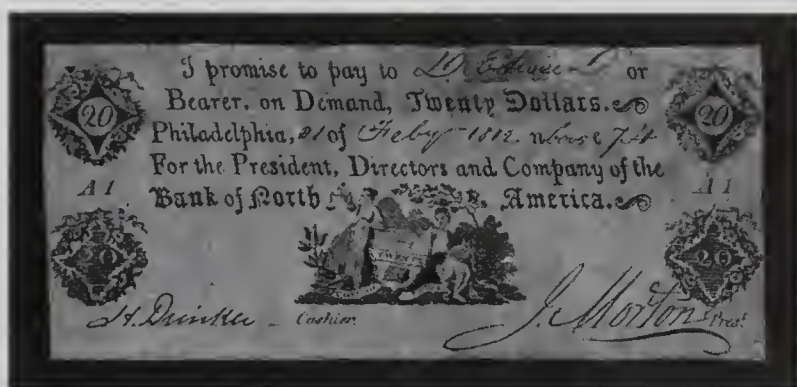 20 I promise to pay to or 20
Bearer, on Demand, Twenty Dollars.
Philadelphia, 21 of Feby 1812.
For the President, Directors and Company of the
A1 Bank of North America. A1
20 TWENTY 20
H. Drinker Cashier. J. Morton Prest.